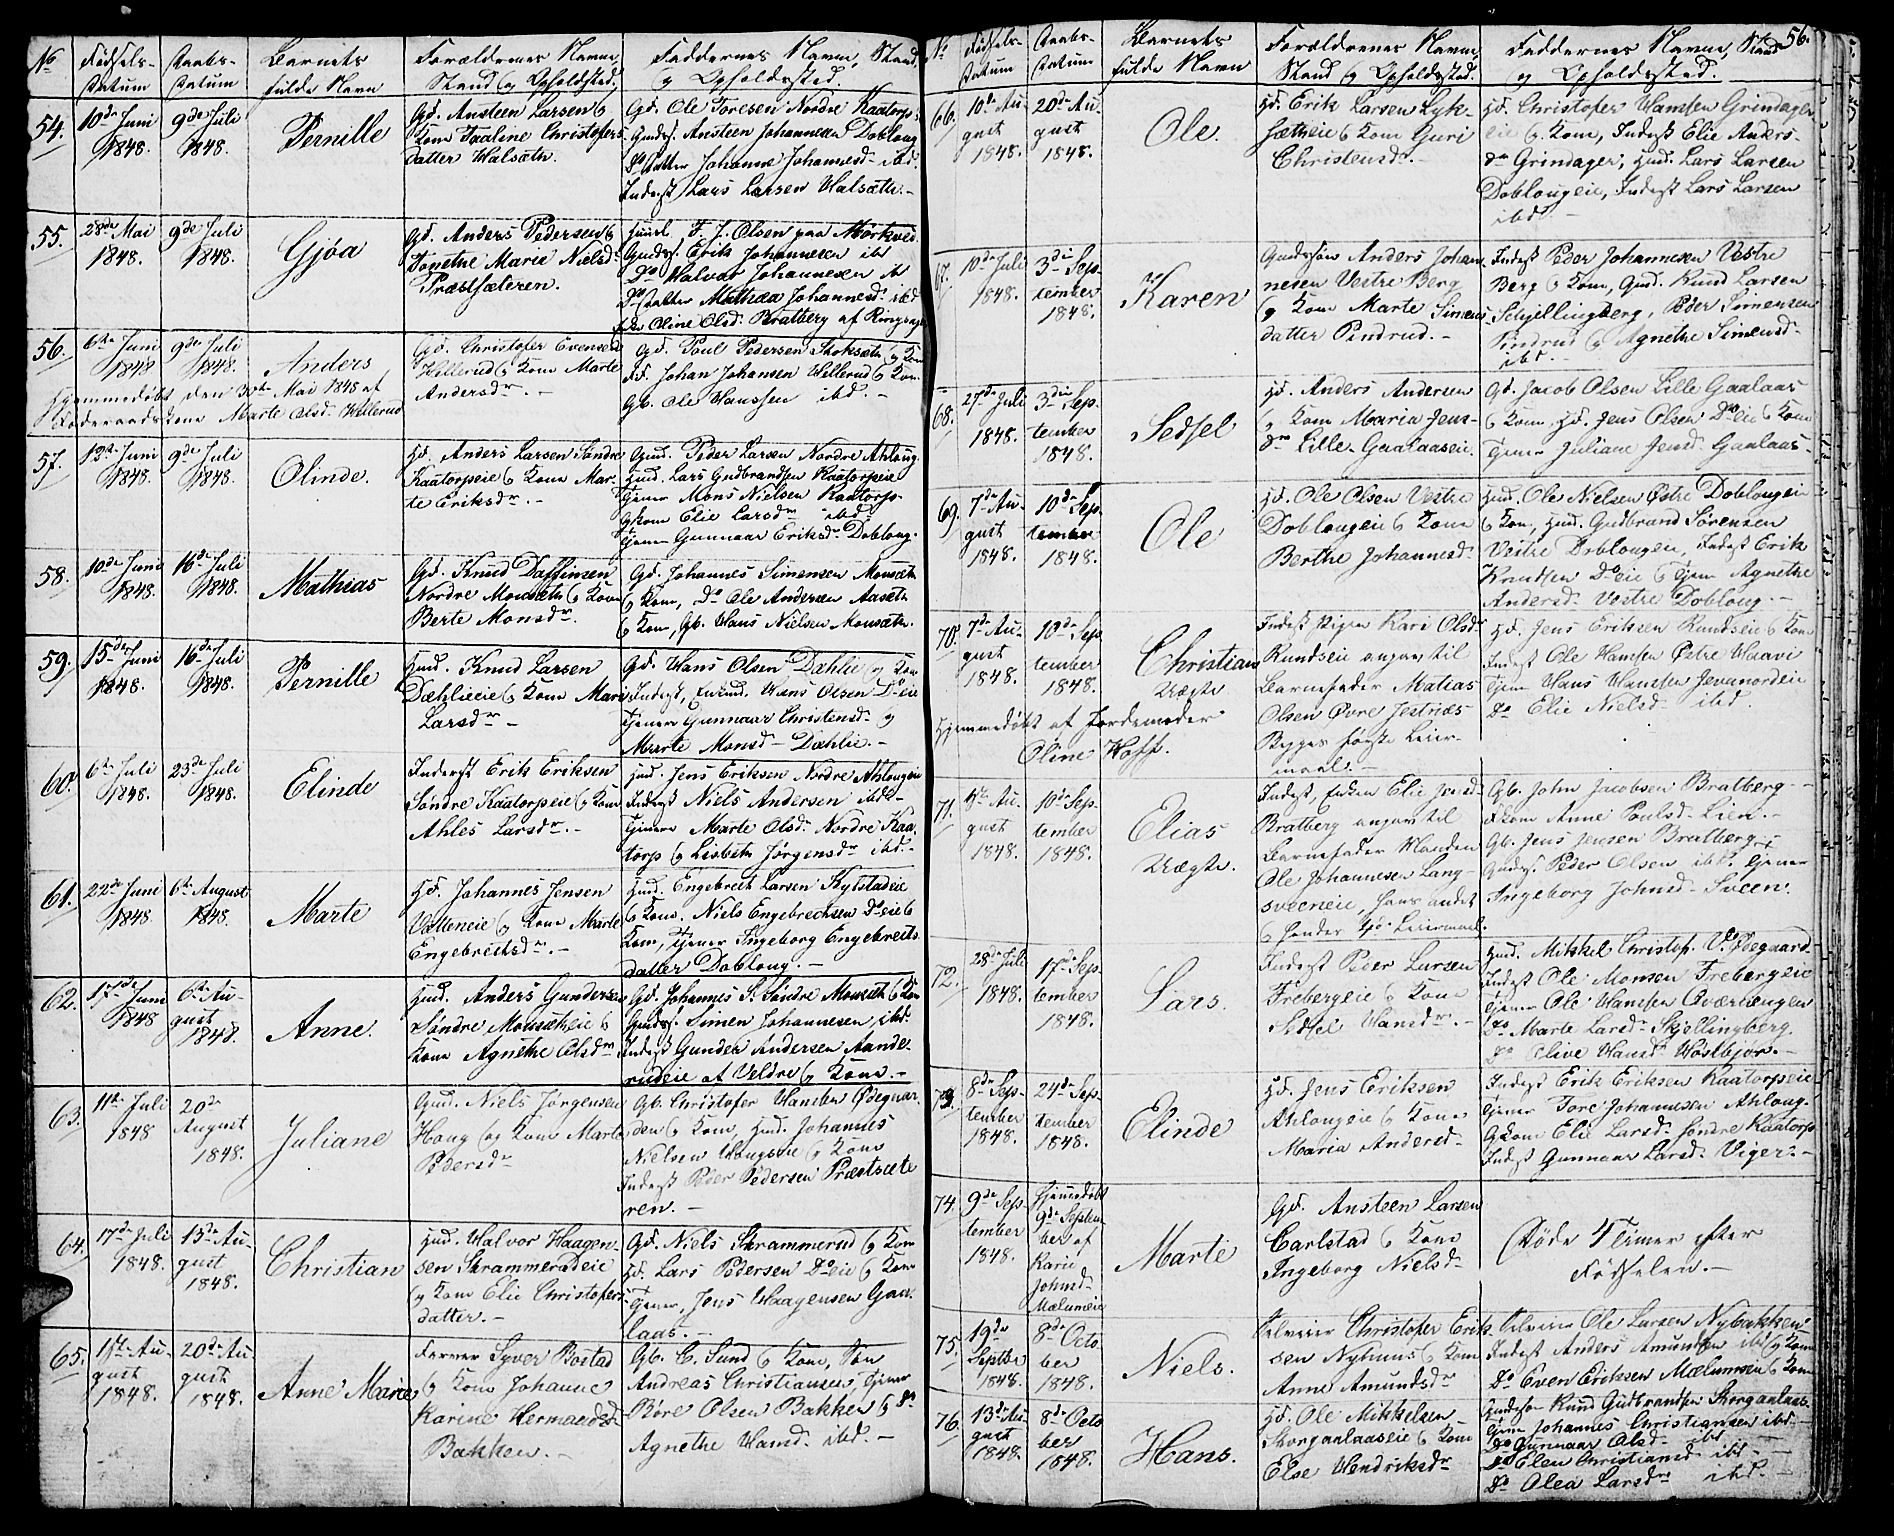 No Fødsels- Daabs- Barnets Forældrenes Navne, Faddernes Navne, Stand
Datum Datum fulde Navn Stand og Opholdsted. og Opholdssted.
54. 10de Juni 1848. 9de Juli 1848. Pernille
Gd. Ansteen Larsen og
Kone Paaline Christofers
datter Halsæth.
Gd. Ole Toresen Nordre Kaatorp
Gudss. Ansteen Johannesen Dobloug
Do datter Johanne Johannesd. ibd.
Inderst Lars Larsen Halsæth. -
55. 28de Mai 1848. 9de Juli 1848. Gjøa
Gd. Anders Pedersen og
Dønethe Marie Nielsd.
Præstsæteren.
F. J. Olsen paa Mørkved
Gudss. Erik Johannesen ibd
Do Halvor Johannesen ib
Do datter Mathea Johannesd. ibd
Oline Olsd. Bratberg af Ringsager
56. 6te Juni 1848 9de Juli 1848. Anders
Hjemmedøbt den 30te Mai 1848 af
Marte Olsd. Hillerud
Gd. Christofer Evensen
Hillerud og Kone Marte
Andersdr. -
Gd. Poul Pedersen Stoksæth og Kone
Fd. Johan Johansen Hillerud og Kone
Gb. Ole Hanssen ibd. -
57. 13de Juni 1848. 9de Juli 1848. Olinde.
Hd. Anders Larsen Søndre
Kaatorpeie og Kone Mar-
te Eriksdr. -
Gmd. Peder Larsen Nordre Ahloug
Hmd. Lars Gudbrandsen Kaatorpeie
Tjener Mons Nielsen Kaatorp-
Gkone Elie Larsdr. ibd.
Tjener Gunnaar Eriksdr. Dobloug.
58. 10de Juni 1848. 16de Juli 1848. Mathias
Gd. Knud Daffinsen
Nordre Monsæth og Kone
Berte Monsdr.
Gd. Johannes Simensen Monsæth
og Kone, Do Ole Andersen Aaseth
og Kone, Gb. Hans Nielsen Monsæth.
59. 15de Juni 1848. 16de Juli 1848. Pernille
Hmd. Knud Larsen
Dæhlieie og Kone Mari
Larsdr. -
Gd. Hans Olsen Dæhlie og Kone
Inderst, Enkmd. Hans Olsen Do eie
Tjenere Gunnaar Christensd. og
Marte Monsd. Dæhlie. -
60. 6te Juli 1848. 23de Juli 1848. Elinde
Inderst Erik Eriksen
Søndre Kaatorpeie og Kone
Ahles Larsdr. -
Hmd. Jens Eriksen Nordre Ahlougeie
Inderst Niels Andersen ibd. -
Tjenere Marte Olsd. Nordre Kaa-
torp og Lisbeth Jørgensdr. ibd. -
61. 22de Juni 1848 6te August 1848. Marte
Hd. Johannes Jensen
Valleneie og Kone Marte
Engebretsdr. -
Hmd. Engebreth Larsen Kylstadeie
og Kone. Niels Engebrechsen Do eie og
Kone, Tjener Ingeborg Engebrets
datter Doblong. -
62. 17de Juni 1848 6te Au-
gust 1848. Anne.
Hmd. Anders Gundersen
Søndre Monsætheie og
Kone Agnethe Olsdr.
Gd. Johannes S. Søndre Monseth og Kone
Gudss. Simen Johannesen ibd.
Inderst Gunder Andersen Aande-
rudeie af Veldre og Kone. -
63. 11te Juli 1848 20de August 1848. Juliane
Gmd. Niels Jørgensen
Houg og Kone Marte
Pedersdr
Gb. Christofer Hansen Ødegaar-
den og Kone, Hmd. Johannes
Nielsen Hougseie og Kone
Inderst Peder Pedersen Præstsæte
ren. -
64. 17de Juli 1848. 13de Au-
gust 1848. Christian
Hmd. Halvor Haagen-
sen Skrammerudeie
og Kone Elie Christofers
datter. -
Gd. Niels Skrammerud og Kone
Hd. Lars Pedersen Do eie og Kone
Tjener, Jens Haagensen Gaa-
laas. -
65. 11te Au-
gust 1848. 20de Au-
gust 1848. Anne Marie
Farver Syver Bostad
og Kone Johanne
Karine Hermansd.
Bakken. -
Gb. C. Sund og Kone, Søn
Andreas Christiansen, Tjener
Børe Olsen Bakken og Do
Agnethe Hansd. ibd. -
56.
No Fødsels- Daabs- Barnets Forældrenes Navne, Faddernes Navne, Stand
Datum Datum fulde Navn Stand og Opholdsted. og Opholdssted.
66. 10de Au-
gust 1848. 20de Au-
gust 1848. Ole.
Hd. Erik Larsen Lyk-
sætheie og Kone Guri
Christensdr. -
Hd. Christofer Hansen Grindager
eie og Kone, Inderst Elie Anders-
dr Grindager, Hmd. Lars Larsen
Doblougeie, Inderst Lars Larsen
ibd. -
67. 10de Juli 1848. 3die Sep-
tember 1848. Karen
Gudssøn Anders Johan-
nesen Vestre Berg
og Kone Marte Simens
datter Pindrud. -
Inderst Peder Johannesen Vestre
Berg og Kone, Gmd. Knud Larsen
Schjellingberg, Peder Simensen
Pindrud og Agnethe Simensd.
ibd. -
68. 27de Juli 1848. 3die Sep-
tember 1848. Sedsel
Hd. Anders Andersen
og Kone Maria Jens-
dr Lille-Gaalaaseie.
Gd. Jacob Olsen Lille Gaalaas
og Kone, Hd. Jens Olsen Do eie og Kone
Tjener Juliane Jensd. Gaalaas -
69. 7de Au-
gust 1848. 10de Sep-
tember 1848. Ole
Hd. Ole Olsen Vestre
Doblougeie og Kone
Berthe Johannesd.
Hmd. Ole Nielsen Østre Doblougeie
og Kone, Hmd. Gudbrand Sørensen
Vestre Doblougeie, Inderst Erik
Knudsen Do eie og Tjener Agnethe
Andersd. Vestre Doblong. -
70. 7de Au-
gust 1848. 10de Sep-
tember 1848. Christian
Uægte
Hjemmedøbt af Jordemoder
Oline Hoff.
Inderst Pigen Kari Olsdr
Rundseie angav til
Barnefader Matias
Olsen Øvre Jestnæs
Bygges første Leier-
maal. -
Hd. Jens Eriksen Rundseie og Kone
Inderst Ole Hansen Østre Haavi
Tjener Hans Hansen Jevanordeie
Do Elie Nielsd. ibd.
71. 4de Au-
gust 1848. 10de Sep-
tember 1848. Elias
Uægte.
Inderst, Enken Elie Jensd.
Bratberg angav til
Barnefader Manden
Ole Johannesen Lang-
sveeneie, hans andet
og hendes Leiermaal.
Gb. John Jacobsen Bratberg. -
Fkone Anne Poulsd. Lien. -
Gb. Jens Jensen Bratberg. -
Gudss. Peder Olsen ibd. Tjener
Ingeborg Johnsd. Sveen.
72. 28de Juli 1848. 17de Sep-
tember 1848. Lars.
Inderst Peder Larsen
Frebergeie og Kone
Sedsel Hansdr. -
Hmd. Mikkel Christof. V. Ødegaard -
Inderst Ole Monsen Frebergeie
Tjener Ole Hansen Overhengen
Do Marte Larsdr. Skjellingberg.
Do Olive Hansd. Høstbjør. -
73. 8de Sep-
tember 1848. 24de Sep-
tember 1848. Elinde
Hd. Jens Eriksen
Ahlougeie og Kone
Maria Andersd.
Inderst Erik Eriksen Kaatorpeie
Tjener Tore Johannesen Ahloug.
Gkone Elie Larsd. Søndre Kaatorp
Inderst Gunnaar Larsd. Viger. -
74. 9de Sep-
tember 1848. Hjemmedøbt
9de Septem-
ber af
Karii
Johnsd.
Mælumeie
Marte
Gd. Ansteen Larsen
Carlstad og Kone
Ingeborg Nielsd.
Døde 4 Timer efter
Fødselen. -
75. 19de
Septbr 1848. 8de Octo
ber 1848. Niels.
Selveier Christofer Erik-
sen Nyhuus og Kone
Anne Amundsdr
Selveier Ole Larsen Nybakken
Inderst Anders Amundsen ibd. og Kone
Do Even Eriksen Mælumsen og Kone
76. 13de Au-
gust 1848. 8de Octo
ber 1848. Hans.
Hd. Ole Mikkelsen
Skorgaalaaseie og Kone
Else Hendriksdr
Gudssøn Knud Gudbrandsen Skorgaalaas-
Tjener Johannes Christiansen ibd. -
Do Gunnaar Olsd. ibd -
Do Elen Christiansd. ibd. -
Do Olea Larsdr. ibd. -